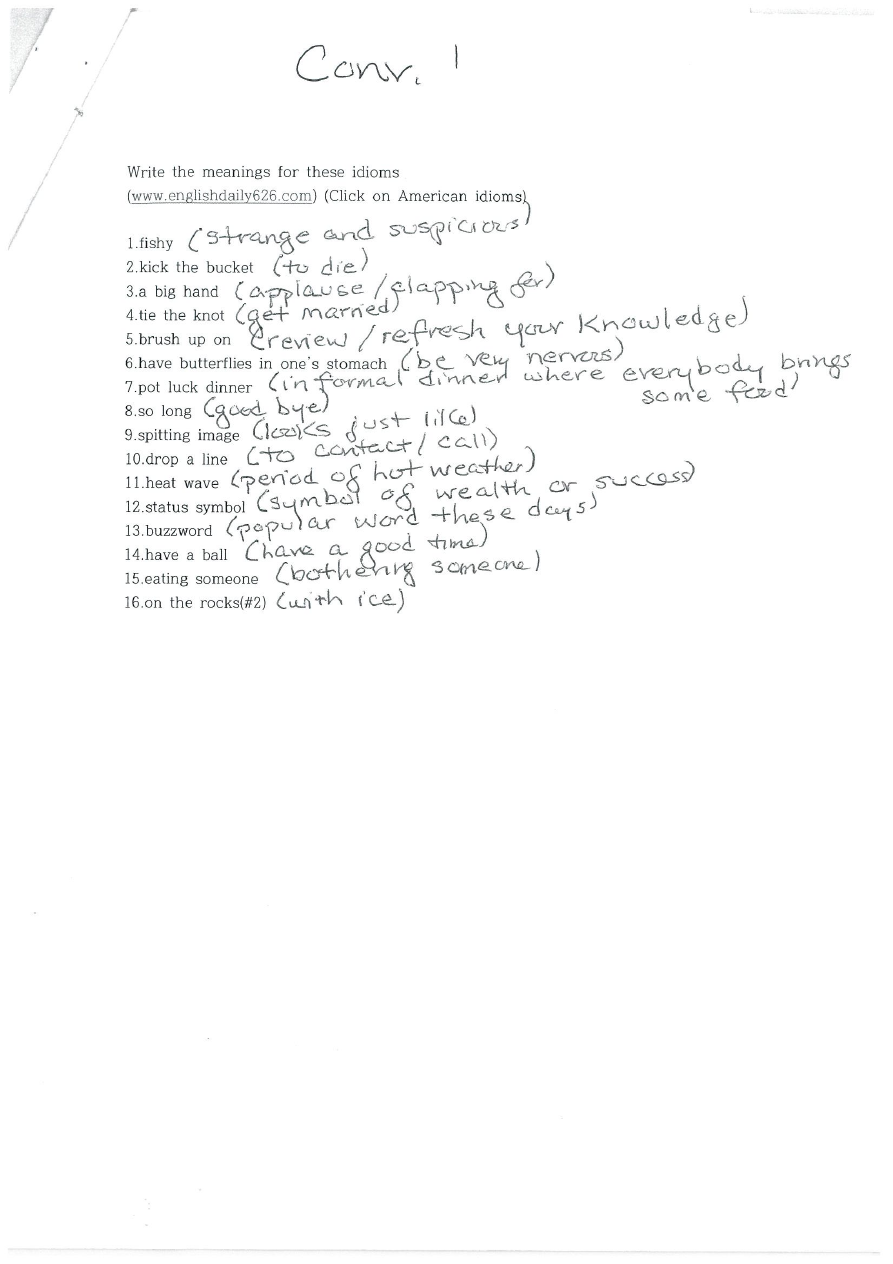 Conv. 1
Write the meanings for these idioms
(www.englishdaily626.com) (Click on American idioms)
1.fishy (strange and suspicious)
2.kick the bucket (to die)
3.a big hand (applause/clapping for)
4.tie the knot (get married)
5.brush up on (review/refresh your knowledge)
6.have butterflies in one's stomach (be very nervous)
7.pot luck dinner (informal dinner where everybody brings
some food)
8.so long (good bye)
9.spitting image (looks just like)
10.drop a line (to contact/call)
11.heat wave (period of hot weather)
12.status symbol (symbol of wealth or success)
13.buzzword (popular word these days)
14.have a ball (have a good time)
15.eating someone (bothering someone)
16.on the rocks(#2) (with ice)